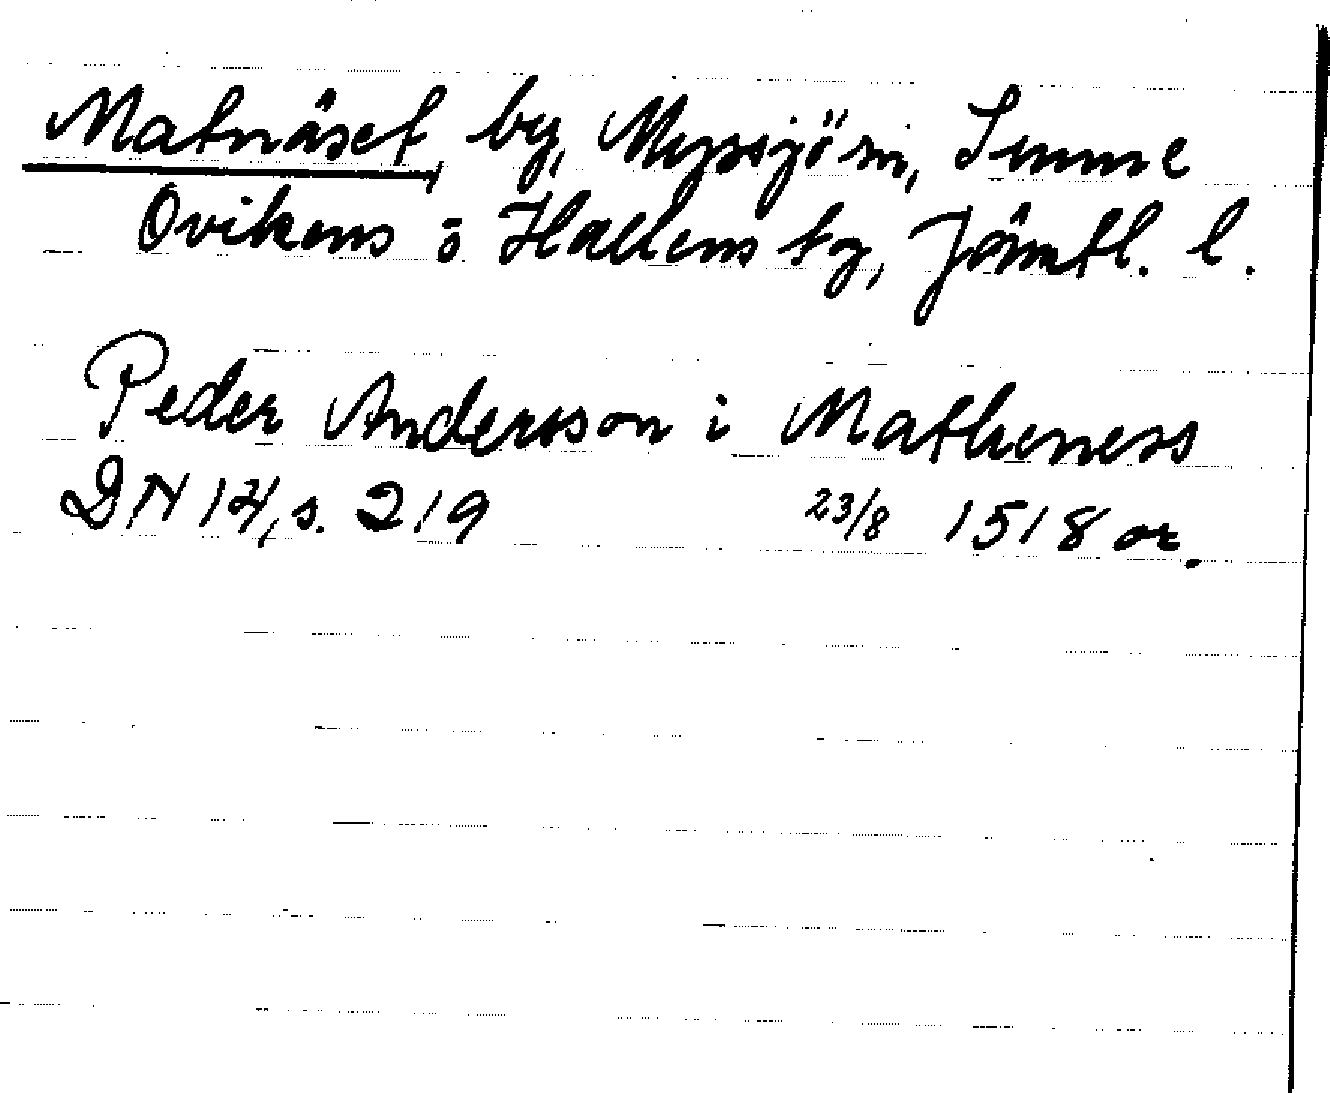 Matnäset, by, Myssjö sn, Sunne
Ovikens o Hallens tg, Jämtl. l.
Peder Andersson i Matheness
DN 14, s. 219 23/8 1518 or.